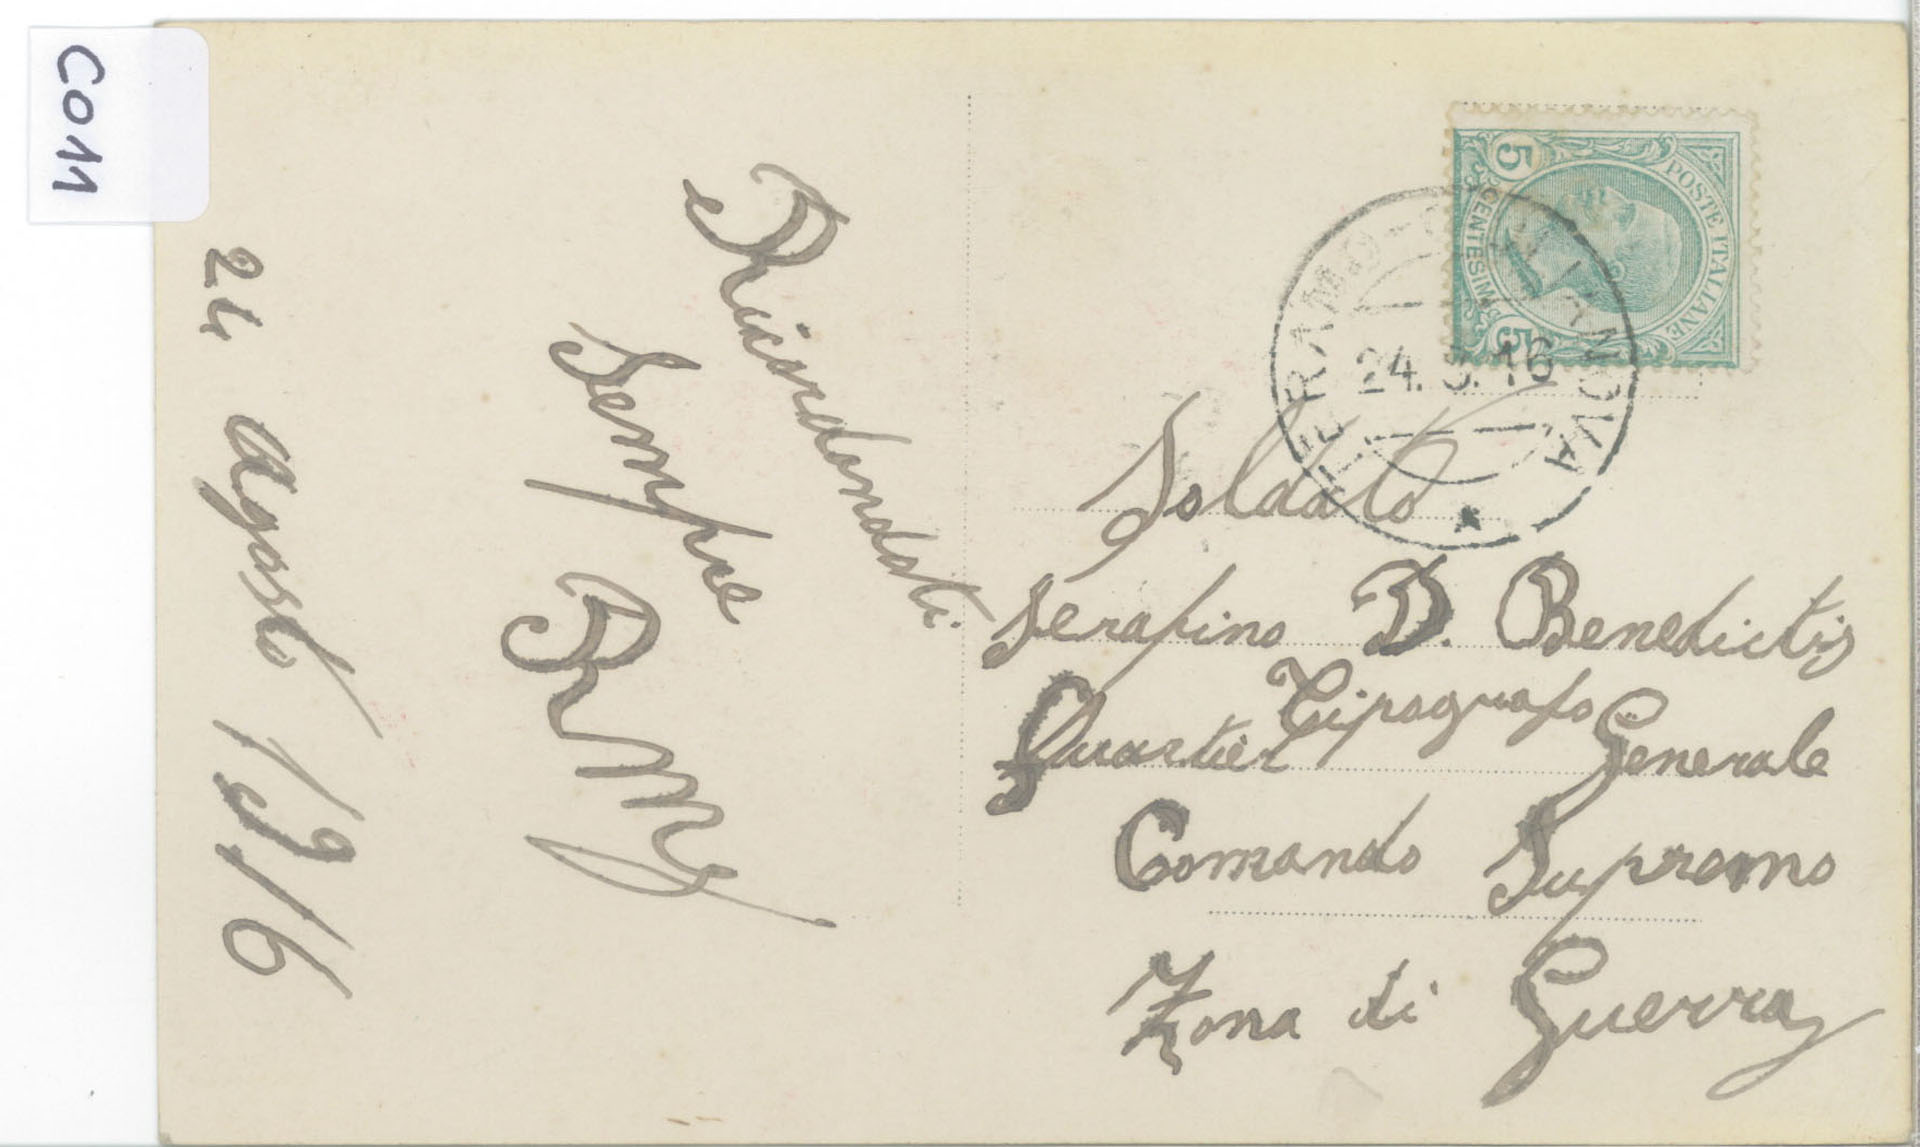 CO11
24 Agosto 1916
Ricordandoti
Sempre
POSTE ITALIANE
5 CENTESIMI 5
24. 16
Soldato
Serafino D. Benedictis
Tipografo
Quartier Generale
Comando Supremo
Zona di Guerra